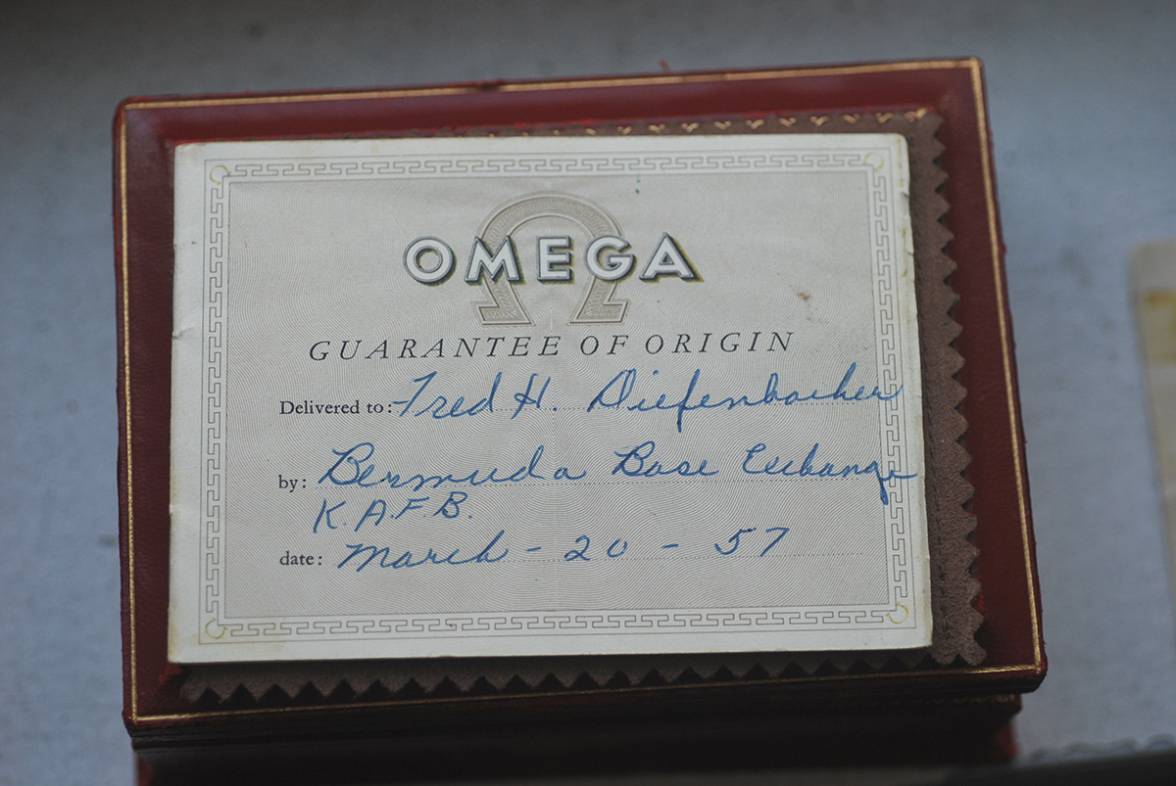 OMEGA
GUARANTEE OF ORIGIN
Delivered to: Fred H. Diefenbacher
by: Bermuda Base Exchange
K.A.F.B.
date: March - 20 - 57